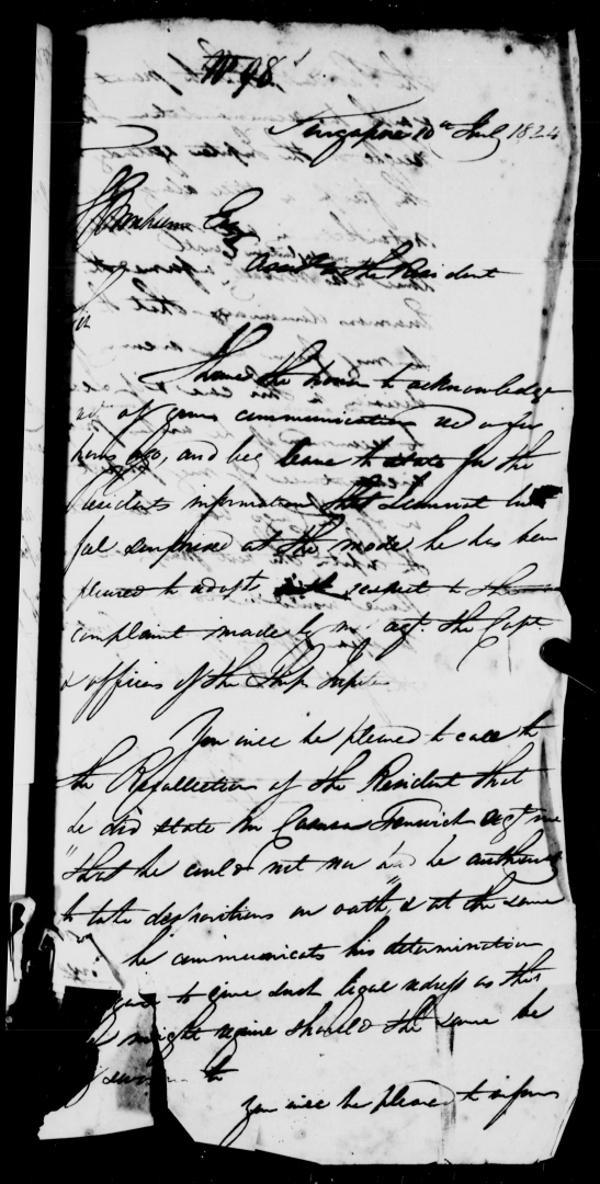 No 98
Singapore 10th July 1824
Bonham Esq
Assist to the Resident
Sir
I have the honor to acknowledge
of your communication a few
hours ago, and beg leave to state for the
Residents information that I cannot but
feel surprised at the mode he has been
pleased to adopt with respect to the
complaint made by me agt. the Capt.
& officers of the Ship
You will be pleased to call to
the Recollection of the Resident that
he did state in Fenwick agt me
"that he could not nor had he authority
to take depositions on oath", & at the same
he communicats his determination
to give such legal redress as this
might require should the same be
to
You will be pleased to inform